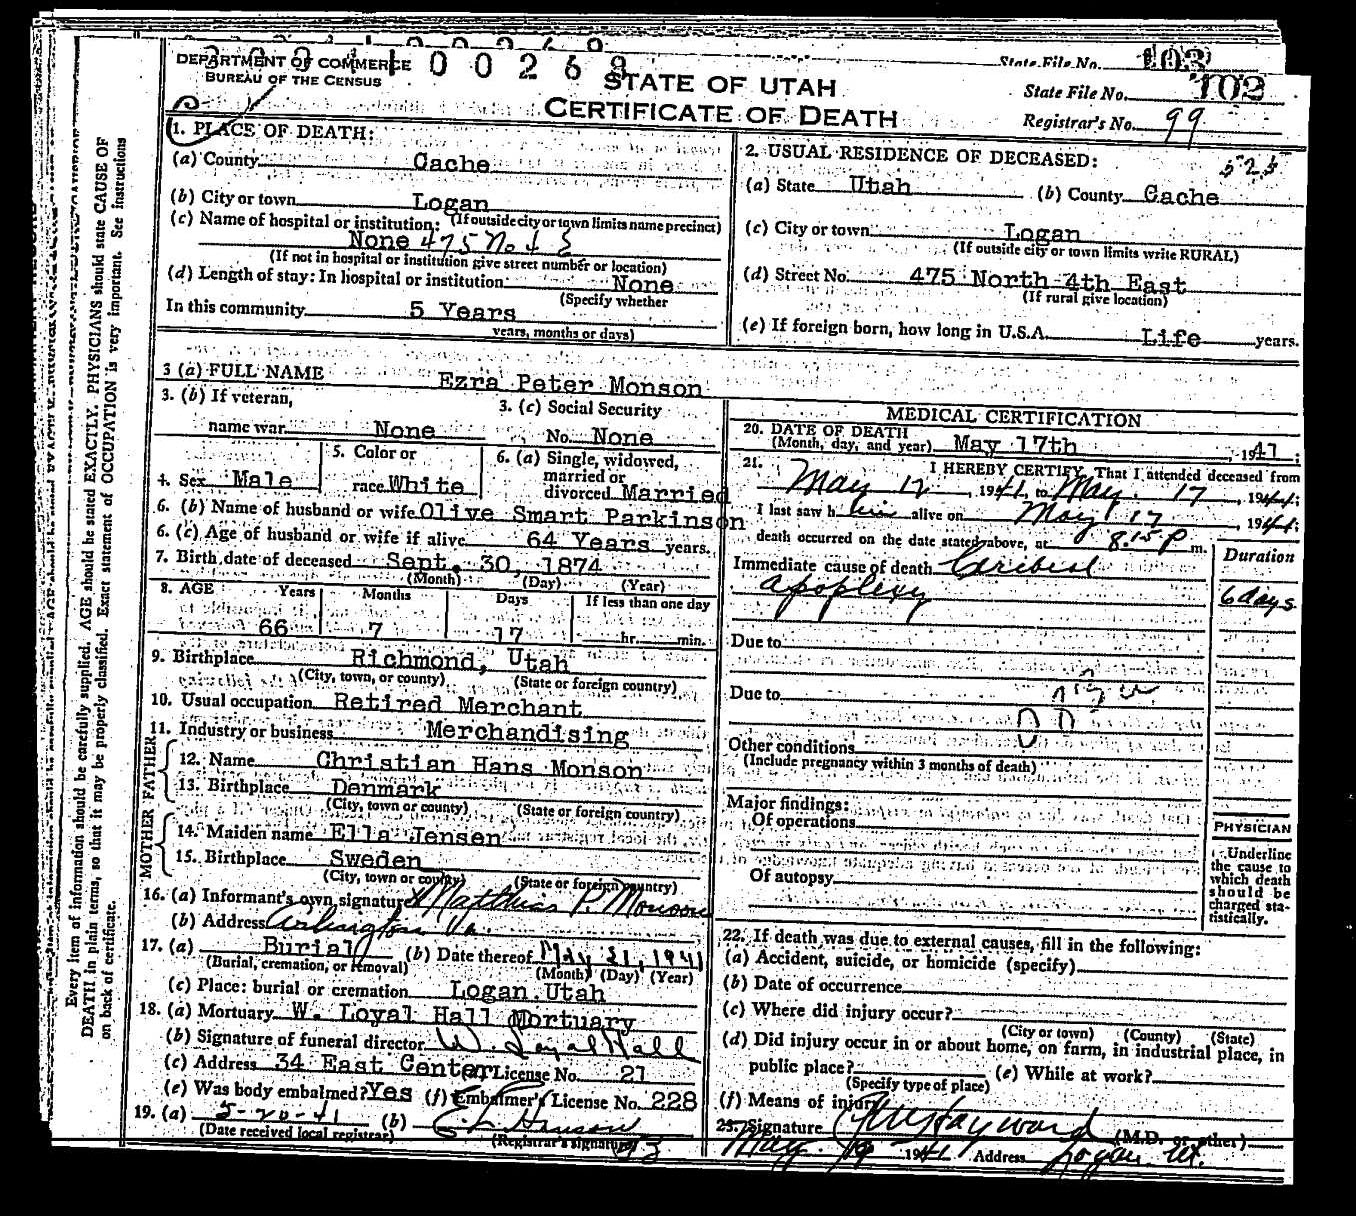 DEPARTMENT OF COMMERCE
BUREAU OF THE CENSUS
00268
State File No. 103
STATE OF UTAH
CERTIFICATE OF DEATH
State File No. 102
Registrar's No. 99
Every item of information should be carefully supplied. AGE should be stated EXACTLY. PHYSICIANS should state CAUSE OF
DEATH in plain terms, so that it may be properly classified. Exact statement of OCCUPATION is very important. See instructions
on back of certificate.
1. PLACE OF DEATH:
(a) County Cache
(b) City or town Logan
(If outside city or town limits name precinct)
(c) Name of hospital or institution:
None 475 No 4 E
(If not in hospital or institution give street number or location)
(d) Length of stay: In hospital or institution None
(Specify whether
In this community 5 Years
years, months or days)
2. USUAL RESIDENCE OF DECEASED:
(a) State Utah (b) County Cache
(c) City or town Logan
(If outside city or town limits write RURAL)
(d) Street No. 475 North 4th East
(If rural give location)
(e) If foreign born, how long in U.S.A. Life years.
3 (a) FULL NAME Ezra Peter Monson
3. (b) If veteran,
name war None
3. (c) Social Security
No. None
4. Sex Male
5. Color or
race White
6. (a) Single, widowed,
married or
divorced Married
6. (b) Name of husband or wife Olive Smart Parkinson
6. (c) Age of husband or wife if alive 64 Years years.
7. Birth date of deceased Sept. 30, 1874
(Month) (Day) (Year)
8. AGE Years Months Days If less than one day
66 7 17 hr. min.
9. Birthplace Richmond, Utah
(City, town, or county) (State or foreign country)
10. Usual occupation Retired Merchant
11. Industry or business Merchandising
FATHER
12. Name Christian Hans Monson
13. Birthplace Denmark
(City, town or county) (State or foreign country)
MOTHER
14. Maiden name Ella Jensen
15. Birthplace Sweden
(City, town or county) (State or foreign country)
16. (a) Informant's own signature Matthias P. Monson
(b) Address Arlington Va.
17. (a) Burial (b) Date thereof May 21, 1941
(Burial, cremation, or removal) (Month) (Day) (Year)
(c) Place: burial or cremation Logan Utah
18. (a) Mortuary W. Loyal Hall Mortuary
(b) Signature of funeral director W. Loyal Hall
(c) Address 34 East Center License No. 21
(e) Was body embalmed? Yes (f) Embalmer's License No. 228
19. (a) 5-20-41 (b)
(Date received local registrar) (Registrar's signature)
MEDICAL CERTIFICATION
20. DATE OF DEATH
(Month, day, and year) May 17th, 1941;
21. I HEREBY CERTIFY, That I attended deceased from
May 12, 1941, to May 17, 1941;
I last saw h im alive on May 17, 1941;
death occurred on the date stated above, at 8:15 P m.
Duration
Immediate cause of death
apoplexy 6 days
Due to
Due to
Other conditions
(Include pregnancy within 3 months of death)
Major findings:
Of operations
Of autopsy
PHYSICIAN
Underline
the cause to
which death
should be
charged sta-
tistically.
22. If death was due to external causes, fill in the following:
(a) Accident, suicide, or homicide (specify)
(b) Date of occurrence
(c) Where did injury occur?
(City or town) (County) (State)
(d) Did injury occur in or about home, on farm, in industrial place, in
public place? (e) While at work?
(Specify type of place)
(f) Means of injury
23. Signature Hayward (M.D. or other)
May 19 1941 Address Logan Ut.